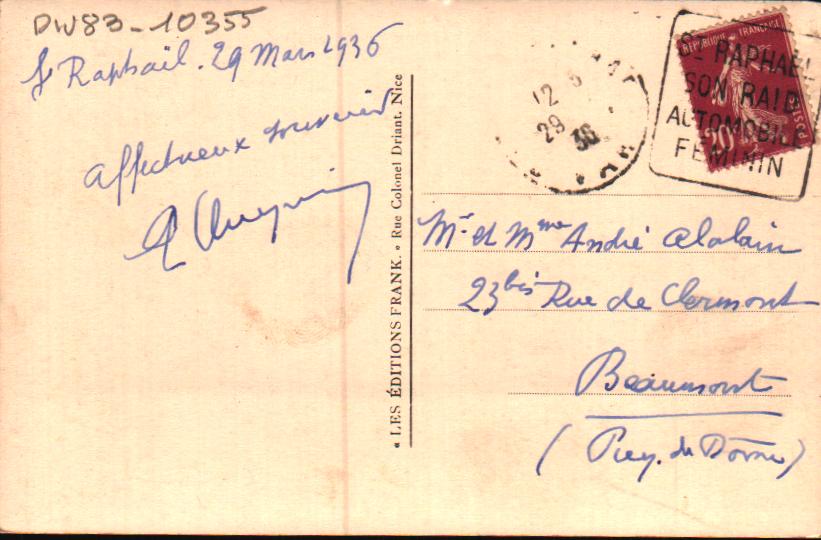 DW83-10355
St Raphaël. 29 Mars 1936
Affectueux souvenir
« LES ÉDITIONS FRANK. » Rue Colonel Driant, Nice
12
29 3
36
ST RAPHAEL
SON RAID
AUTOMOBILE
FEMININ
RÉPUBLIQUE FRANÇAISE
POSTES
20c
Mr et Mme André
23bis Rue de Clermont
Beaumont
(Puy. de Dôme)